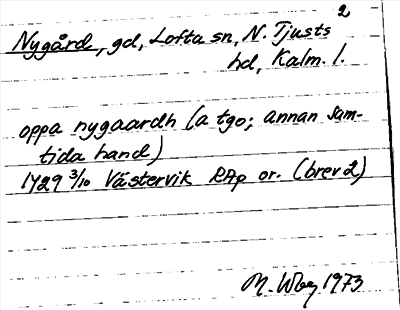 2
Nygård, gd, Lofta sn, N. Tjusts
hd, Kalm. l.
oppa nygaardh (a tgo; annan sam-
tida hand)
1429 3/10 Västervik RAp or. (brev 2)
M. Wbg 1973